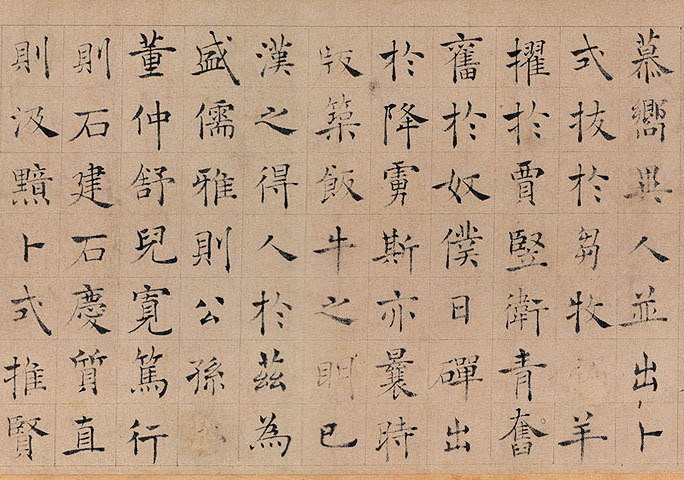 慕嚮異人並出卜
式拔於芻牧羊
擢於賈豎衛青奮
舊於奴僕日磾出
於降虜斯亦曩時
版築飯牛之明已
漢之得人於茲為
盛儒雅則公孫
董仲舒兒寬篤行
則石建石慶質直
則汲黯卜式推賢